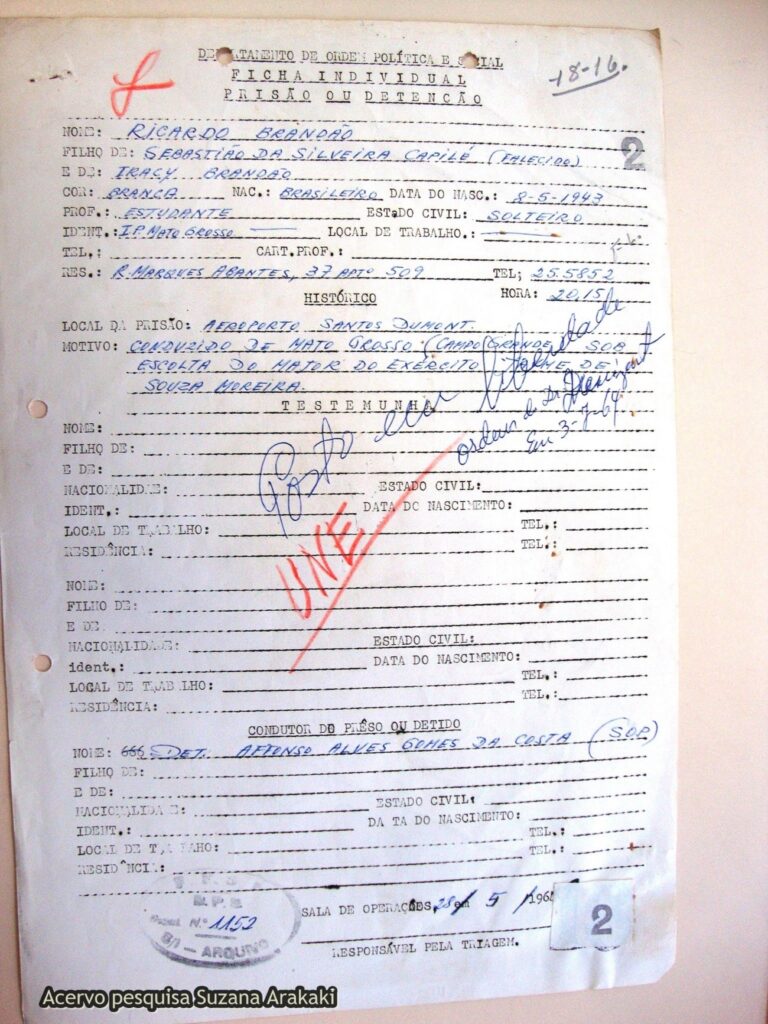 DEPARTAMENTO DE ORDEM POLÍTICA E SOCIAL
FICHA INDIVIDUAL
PRISÃO OU DETENÇÃO
18-16.
2
NOME: RICARDO BRANDÃO
FILHO DE: SEBASTIÃO DA SILVEIRA CAPILÉ (FALECIDO)
E DE: IRACY BRANDÃO
COR: BRANCA NAC.: BRASILEIRO DATA DO NASC.: 8-5-1943
PROF.: ESTUDANTE ESTADO CIVIL: SOLTEIRO
IDENT.: I.P. MATO GROSSO LOCAL DE TRABALHO.:
TEL.: CART.PROF.:
RES.: R. MARQUES ABRANTES, 37 APTº 509 TEL; 25.5852
HISTÓRICO HORA: 20,15
LOCAL DA PRISÃO: AEROPORTO SANTOS DUMONT.
MOTIVO: CONDUZIDO DE MATO GROSSO (CAMPO GRANDE) SOB
ESCOLTA DO MAJOR DO EXÉRCITO DE
SOUZA MOREIRA.
Posto em liberdade
ordens do Dr.
Em 3-7-64
TESTEMUNHA
NOME:
FILHO DE:
E DE:
NACIONALIDADE: ESTADO CIVIL:
IDENT.: DATA DO NASCIMENTO:
LOCAL DE TRABALHO: TEL.:
RESIDÊNCIA: TEL.:
UNE
NOME:
FILHO DE:
E DE
NACIONALIDADE: ESTADO CIVIL:
ident.: DATA DO NASCIMENTO:
LOCAL DE TRABALHO: TEL.:
RESIDÊNCIA: TEL.:
CONDUTOR DO PRÊSO OU DETIDO
NOME: 666 DET. AFFONSO ALVES GOMES DA COSTA (S.O.P.)
FILHO DE:
E DE:
NACIONALIDADE: ESTADO CIVIL:
IDENT.: DA TA DO NASCIMENTO:
LOCAL DE TRABALHO: TEL.:
RESIDÊNCIA: TEL.:
SALA DE OPERAÇÕES, em 28/5/196
RESPONSÁVEL PELA TRIAGEM.
N.º 1152
ARQUIVO
2
Acervo pesquisa Suzana Arakaki